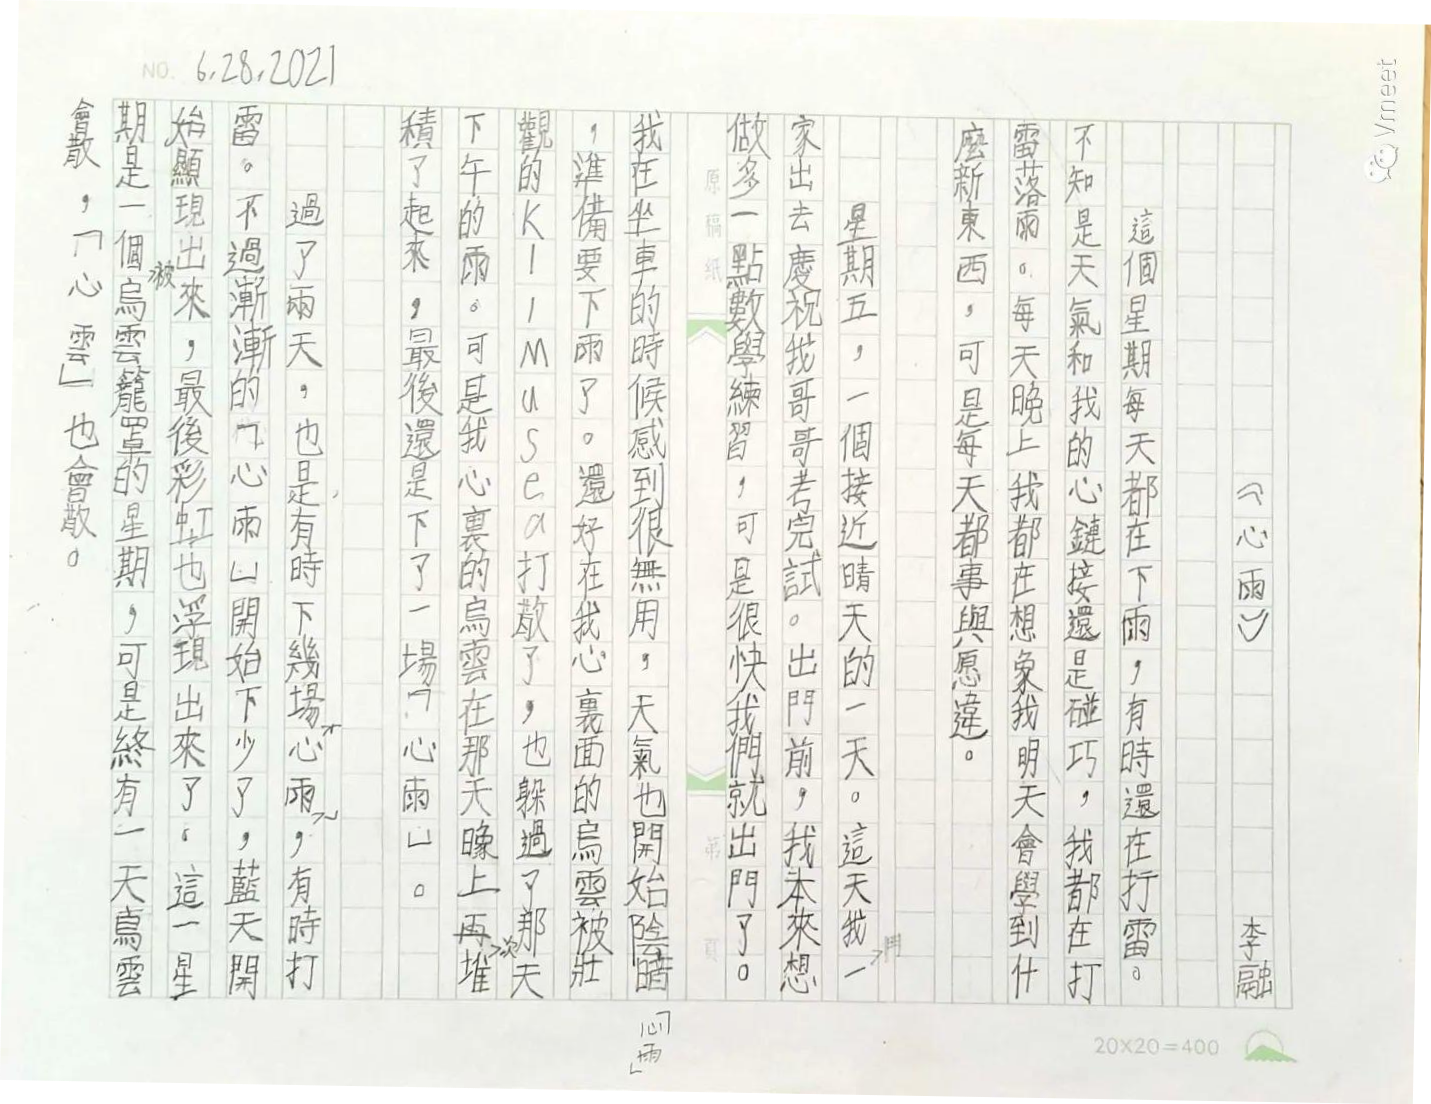 NO. 6.28.2021
《心雨》 李融
這個星期每天都在下雨，有時還在打雷。
不知是天氣和我的心鏈接還是碰巧，我都在打
雷落雨。每天晚上我都在想象我明天會學到什
麼新東西，可是每天都事與愿違。
星期五，一個接近晴天的一天。這天我一
們
家出去慶祝我哥哥考完試。出門前，我本來想
做多一點數學練習，可是很快我們就出門了。
原稿纸
第 頁
我在坐車的時候感到很無用，天氣也開始陰暗
「心雨」
，準備要下雨了。還好在我心裏面的烏雲被壯
觀的KIIMusea打散了，也躲過了那天
下午的雨。可是我心裏的烏雲在那天晚上再堆
次
積了起來，最後還是下了一場「心雨」。
過了雨天，也是有時下幾場心雨，有時打
雷。不過漸漸的「心雨」開始下少了，藍天開
始顯現出來，最後彩虹也浮現出來了。這一星
被
期是一個烏雲籠罩的星期，可是終有一天烏雲
會散，「心雲」也會散。
20×20=400
Vmeet